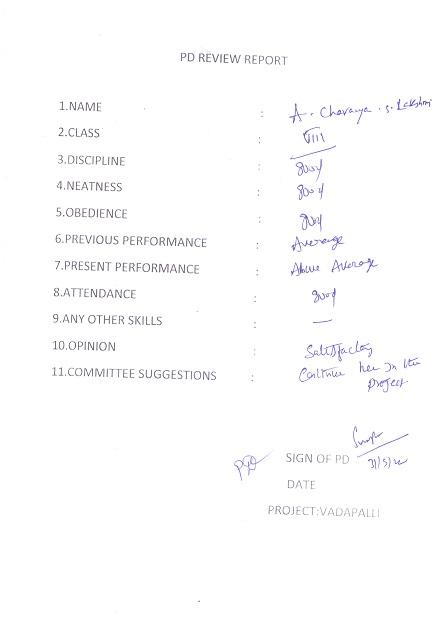 PD REVIEW REPORT
1.NAME : A. Charanya. S. Lakshmi
2.CLASS : VIII
3.DISCIPLINE : good
4.NEATNESS : good
5.OBEDIENCE : good
6.PREVIOUS PERFORMANCE : Average
7.PRESENT PERFORMANCE : Above Average
8.ATTENDANCE : good
9.ANY OTHER SKILLS : —
10.OPINION : Satisfactory
11.COMMITTEE SUGGESTIONS : Continue her in the
project.
SIGN OF PD
DATE
PROJECT:VADAPALLI